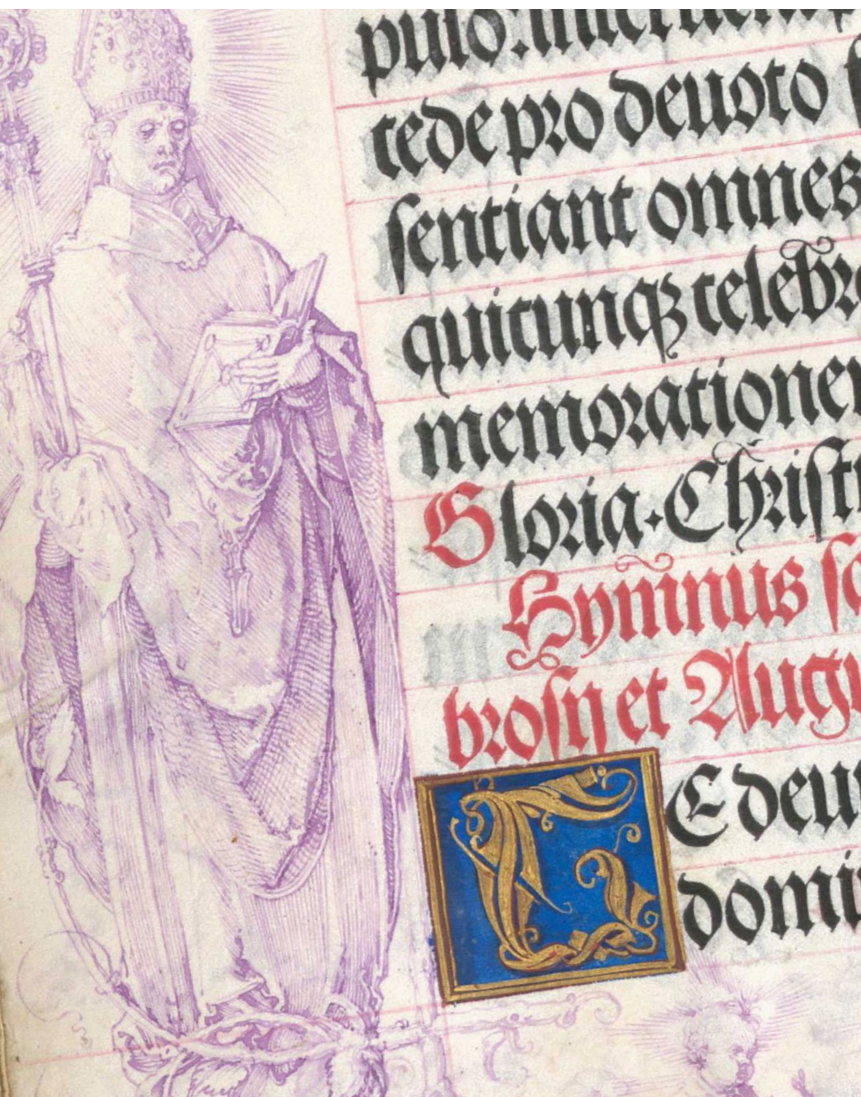 pulo: interueni
cede pro deuoto f
sentiant omnes
quicunqꝫ celebr
memorationem
Gloria. Christi
Hymnus sc
brosij et Augu
TE deu
domi